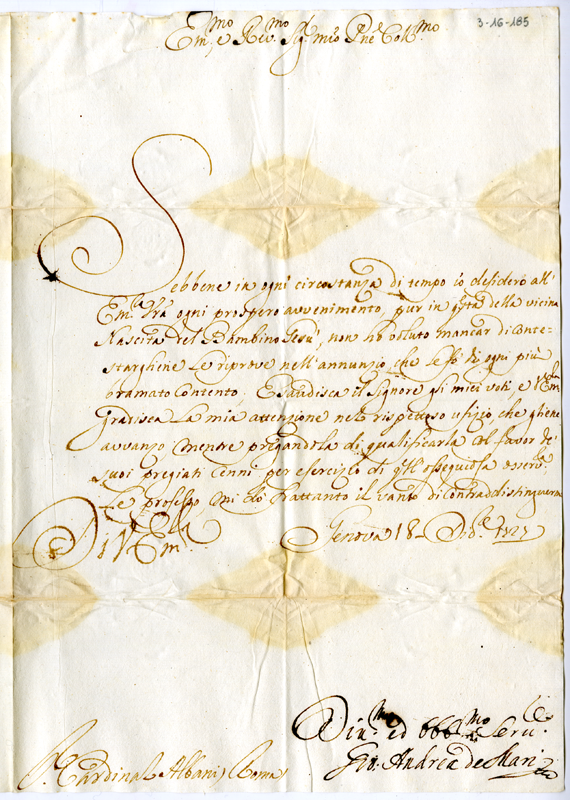 3-16-185
Em.mo e Rev.mo Sig. mio Pñe Coll.mo
Sebbene in ogni circostanza di tempo io desidero all'
Em.a Vrã ogni prospero avvenimento, pur in q.sta della vicina
Nascita del Bambino Gesù, non hò voluto mancar di conte-
starghene le riprove nell'annunzio, che le fò di ogni più
bramato Contento, Esaudisca il Signore gli miei voti, e V Em.
gradisca la mia attenzione nel rispettoso ufizio che ghene
avvanzo mentre pregandola di qualificarla col favor de'
suoi pregiati Cenni per esercizio di q.ll'ossequiosa osserv.
Le professo, mi dò frattanto il vanto di Contraddistinguerm
Di V Em.
Genova 18
Div.mo ed obb.mo Serv.
Gio. Andrea de Mari
Cardinal Albani Roma